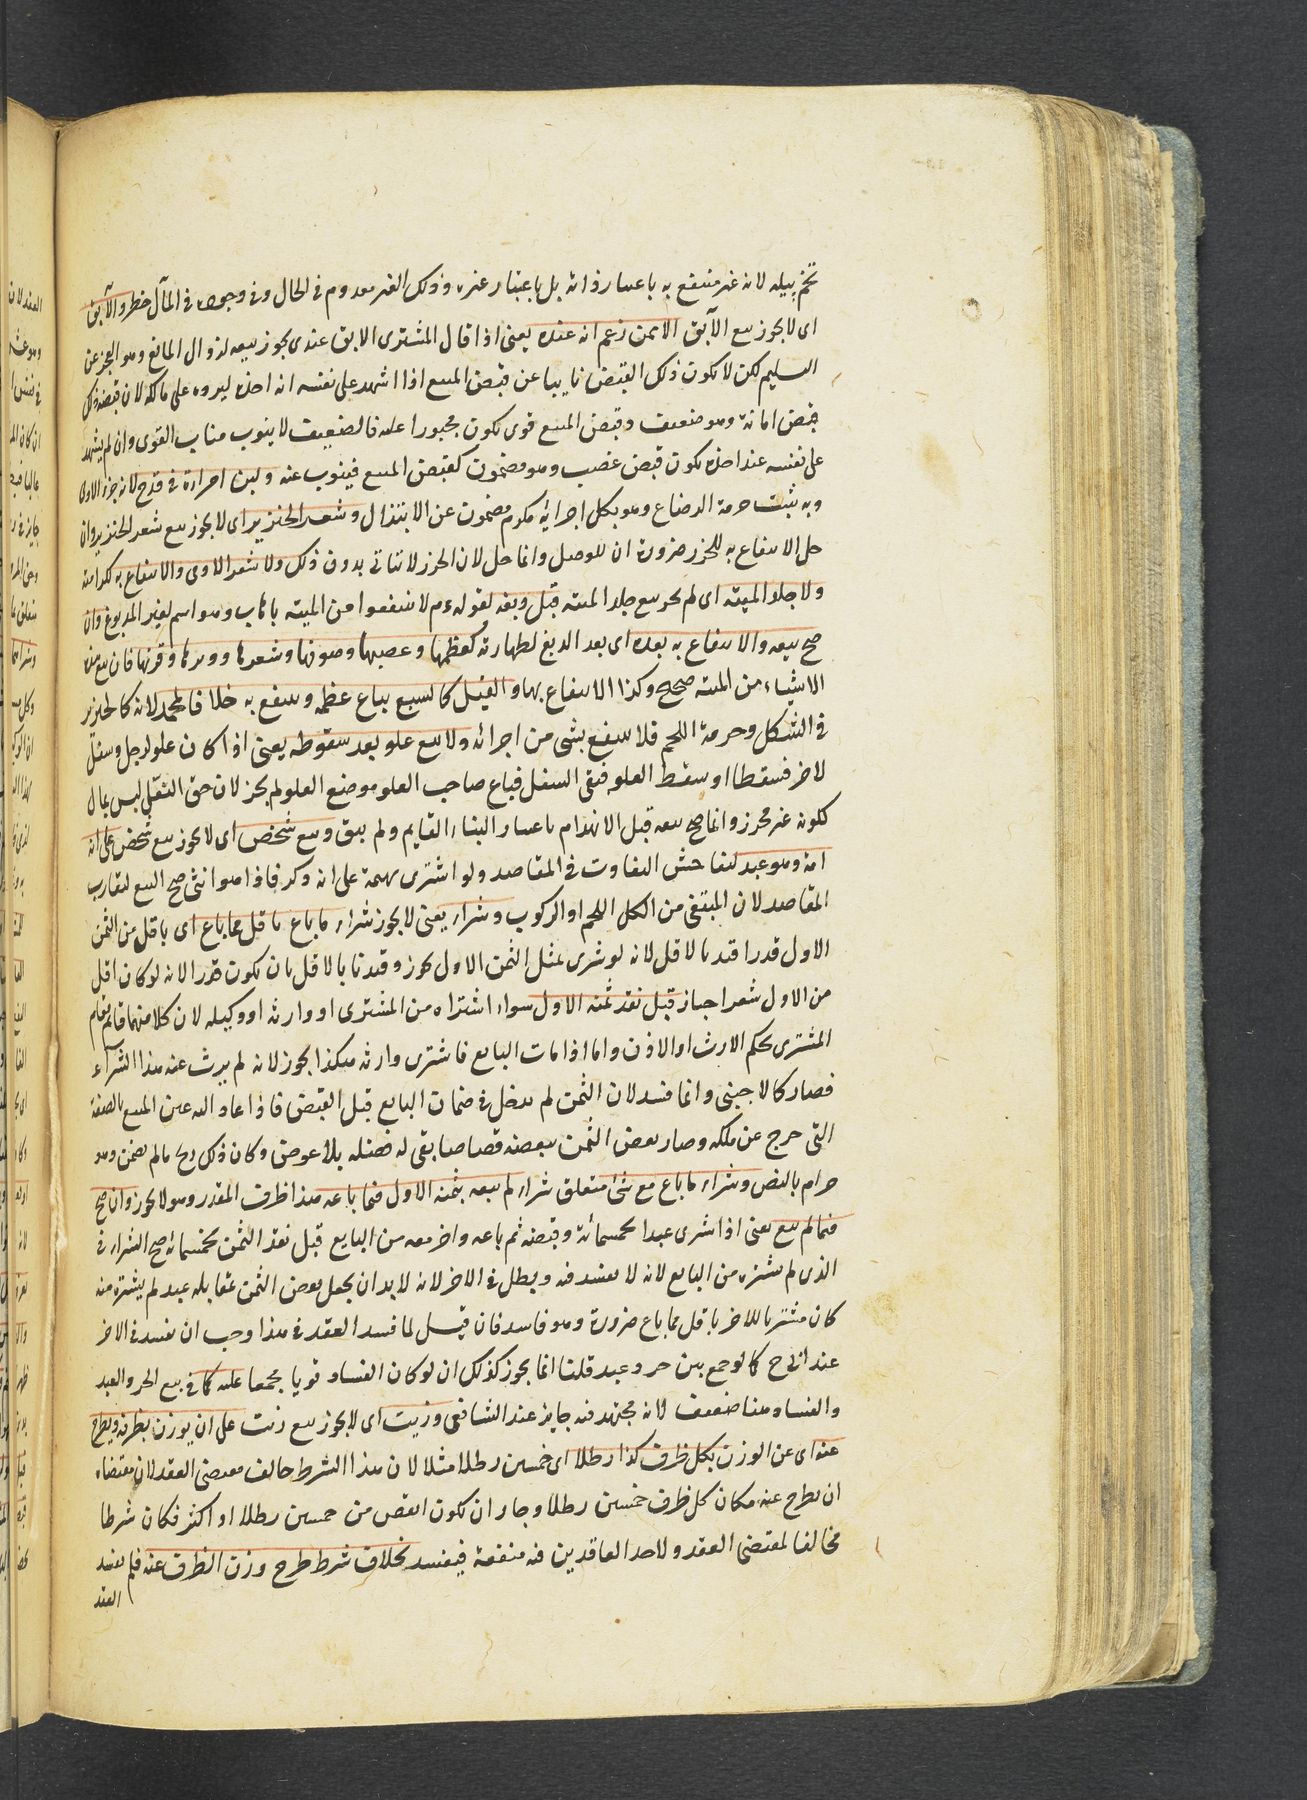 تخم بيله لانه غير منتفع به باعتبار ذاته بل باعتبار غيره وذلك الغير معدوم في الحال وفي وجوده في المآل خطر والآبق
اى لا يجوز بيع الآبق الا ممن زعم انه عنده يعنى اذا قال المشترى الابق عندى يجوز بيعه لزوال المانع وهو العجز عن
التسليم لكن لا يكون ذلك القبض نايبا عن قبض المبيع اذا اشهد على نفسه انه اخذه ليرده على مالكه لان قبضه ذلك
قبض امانة وهو ضعيف وقبض المبيع قوى يكون مجبورا عليه فالضعيف لا ينوب مناب القوى وان لم يشهد
على نفسه عند اخذه يكون قبض غصب وهو مضمون كقبض المبيع فينوب عنه ولبن امراة في قدح لانه جزء الادمى
وبه يثبت حرمة الرضاع وهو بكل اجزائه مكرم مصون عن الابتذال وشعر الخنزير اى لا يجوز بيع شعر الخنزير وان
حل الانتفاع به للخرز ضرورة ان للوصل وانما حل لان الخرز لا يتاتى بدون ذلك ولا شعر الادمى والانتفاع به لكرامته
ولا جلد الميتة اى لم يجز بيع جلد الميتة قبل دبغه لقوله عم لا تنتفعوا من الميتة باهاب وهو اسم لغير المدبوغ وان
صح بيعه والانتفاع به بعده اى بعد الدبغ لطهارته كعظمها وعصبها وصوفها وشعرها ووبرها وقرنها فان بيع هذه
الاشياء من الميتة صحيح وكذا الانتفاع بها والفيل كالسبع يباع عظمه وينتفع به خلافا لمحمد لانه كالخنزير
في الشكل وحرمة اللحم فلا ينتفع بشى من اجزائه ولا بيع علو بعد سقوطه يعنى اذا كان علو لرجل وسفل
لاخر فسقطا او سقط العلو فبقى السفل فباع صاحب العلو موضع العلو لم يجز لان حق التعلى ليس بمال
لكونه غير محرز وانما صح بيعه قبل الانهدام باعتبار البناء القايم ولم يبق وبيع شخص اى لا يجوز بيع شخص على انه
امة وهو عبد لتفاحش التفاوت في المقاصد ولو اشترى بهيمة على انه ذكر فاذا هو انثى صح البيع لتقارب
المقاصد لان المبتغى من الكل اللحم او الركوب وشراء يعنى لا يجوز شراء ما باع باقل مما باع اى باقل من الثمن
الاول قدرا قيد بالاقل لانه لو شرى بمثل الثمن الاول يجوز وقيدنا بالاقل بان يكون قدرا لانه لو كان اقل
من الاول شعرا جاز قبل نقد ثمنه الاول سواء اشتراه من المشترى او وارثه او وكيله لان كلا منهما قائم مقام
المشترى بحكم الارث او الاذن واما اذا مات البايع فاشترى وارثه هكذا يجوز لانه لم يرث عنه هذا الشراء
فصار كالاجنبى وانما فسد لان الثمن لم يدخل في ضمان البايع قبل القبض فاذا عاد اليه عين المبيع بالصفة
التى خرج عن ملكه وصار بعض الثمن ببعضه قصاصا بقى له فضله بلا عوض وكان ذلك ربح ما لم يضمن وهو
حرام بالنص وشراء ما باع مع شئ متعلق شراء لم يبعه بثمنه الاول فيما باعه هذا ظرف المقدر وهو لا يجوز وان صح
فيما لم يبع يعنى اذا اشرى عبدا بخمسمائة وقبضه ثم باعه واخر معه من البايع قبل نقد الثمن بخمسمائة صح الشراء في
الذى لم يشتره من البايع لانه لا يفسد فيه ويبطل في الاخر لانه لابد ان يجعل بعض الثمن بمقابلة عبد لم يشتره منه
كان مشتريا للاخر باقل مما باع ضرورة وهو فاسد فان قيل لما فسد العقد في هذا وجب ان يفسد في الاخر
عند ابى ح كما لو جمع بين حر وعبد قلنا انما يجوز كذلك ان لو كان الفساد قويا مجمعا عليه كما في بيع الحر والعبد
والفساد هنا ضعيف لانه مجتهد فيه جايز عند الشافعى وزيت اى لا يجوز بيع زيت على ان يوزن بظرفه ويطرح
عنه اى عن الوزن بكل ظرف كذا رطلا اى خمسين رطلا مثلا لان هذا الشرط خالف مقتضى العقد لان مقتضاه
ان يطرح عنه مكان كل ظرف خمسين رطلا وجاز ان يكون انقص من خمسين رطلا او اكثر فكان شرطا
مخالفا لمقتضى العقد ولاحد العاقدين فيه منفعة فيفسد بخلاف شرط طرح وزن الظرف عنه فلم يفسد
العقد